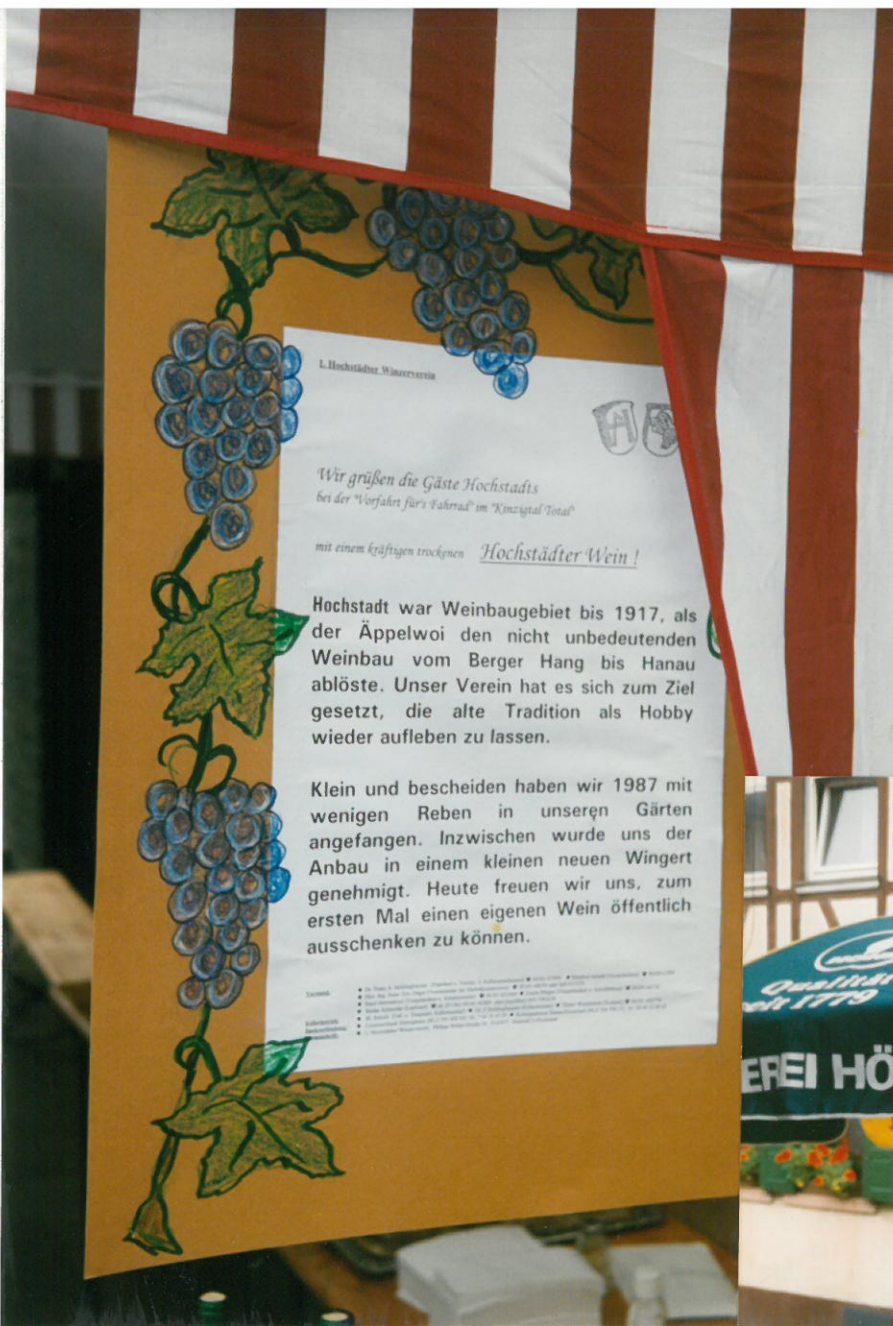 1. Hochstädter Winzerverein
Wir grüßen die Gäste Hochstadts
bei der "Vorfahrt für's Fahrrad" im "Kinzigtal Total"
mit einem kräftigen trockenen Hochstädter Wein !
Hochstadt war Weinbaugebiet bis 1917, als
der Äppelwoi den nicht unbedeutenden
Weinbau vom Berger Hang bis Hanau
ablöste. Unser Verein hat es sich zum Ziel
gesetzt, die alte Tradition als Hobby
wieder aufleben zu lassen.
Klein und bescheiden haben wir 1987 mit
wenigen Reben in unseren Gärten
angefangen. Inzwischen wurde uns der
Anbau in einem kleinen neuen Wingert
genehmigt. Heute freuen wir uns, zum
ersten Mal einen eigenen Wein öffentlich
ausschenken zu können.
Qualitä
seit 1779
EREI HÖ